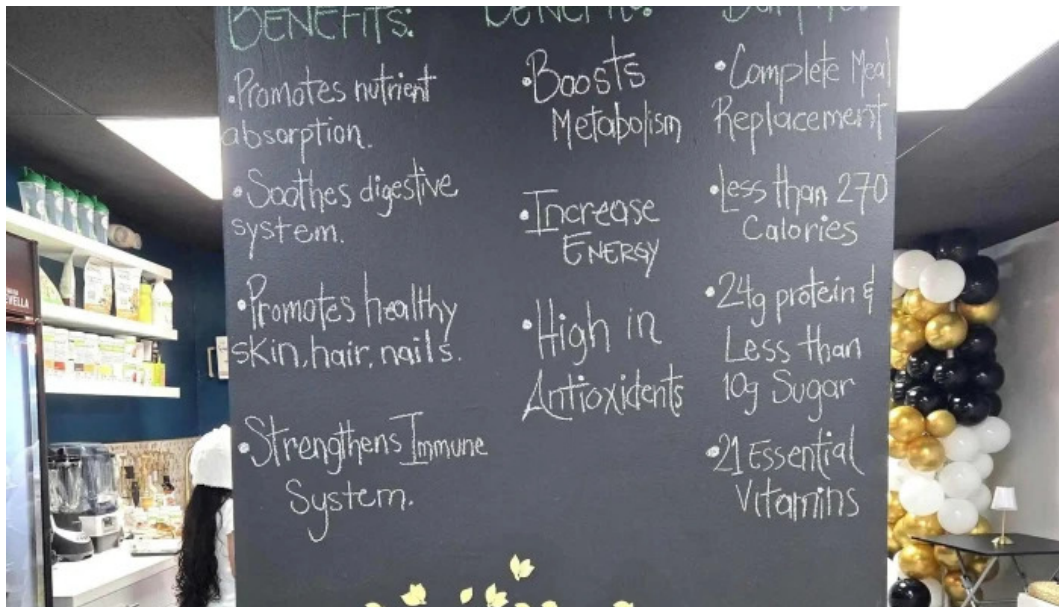 BENEFITS:
•Promotes nutrient
absorption.
•Soothes digestive
system.
•Promotes healthy
skin, hair, nails.
•Strengthens Immune
System.
BENEFITS:
•Boosts
Metabolism
•Increase
ENERGY
•High in
Antioxidents
•Complete Meal
Replacement
•Less than 270
Calories
•24g protein &
Less than
10g Sugar
•21 Essential
Vitamins